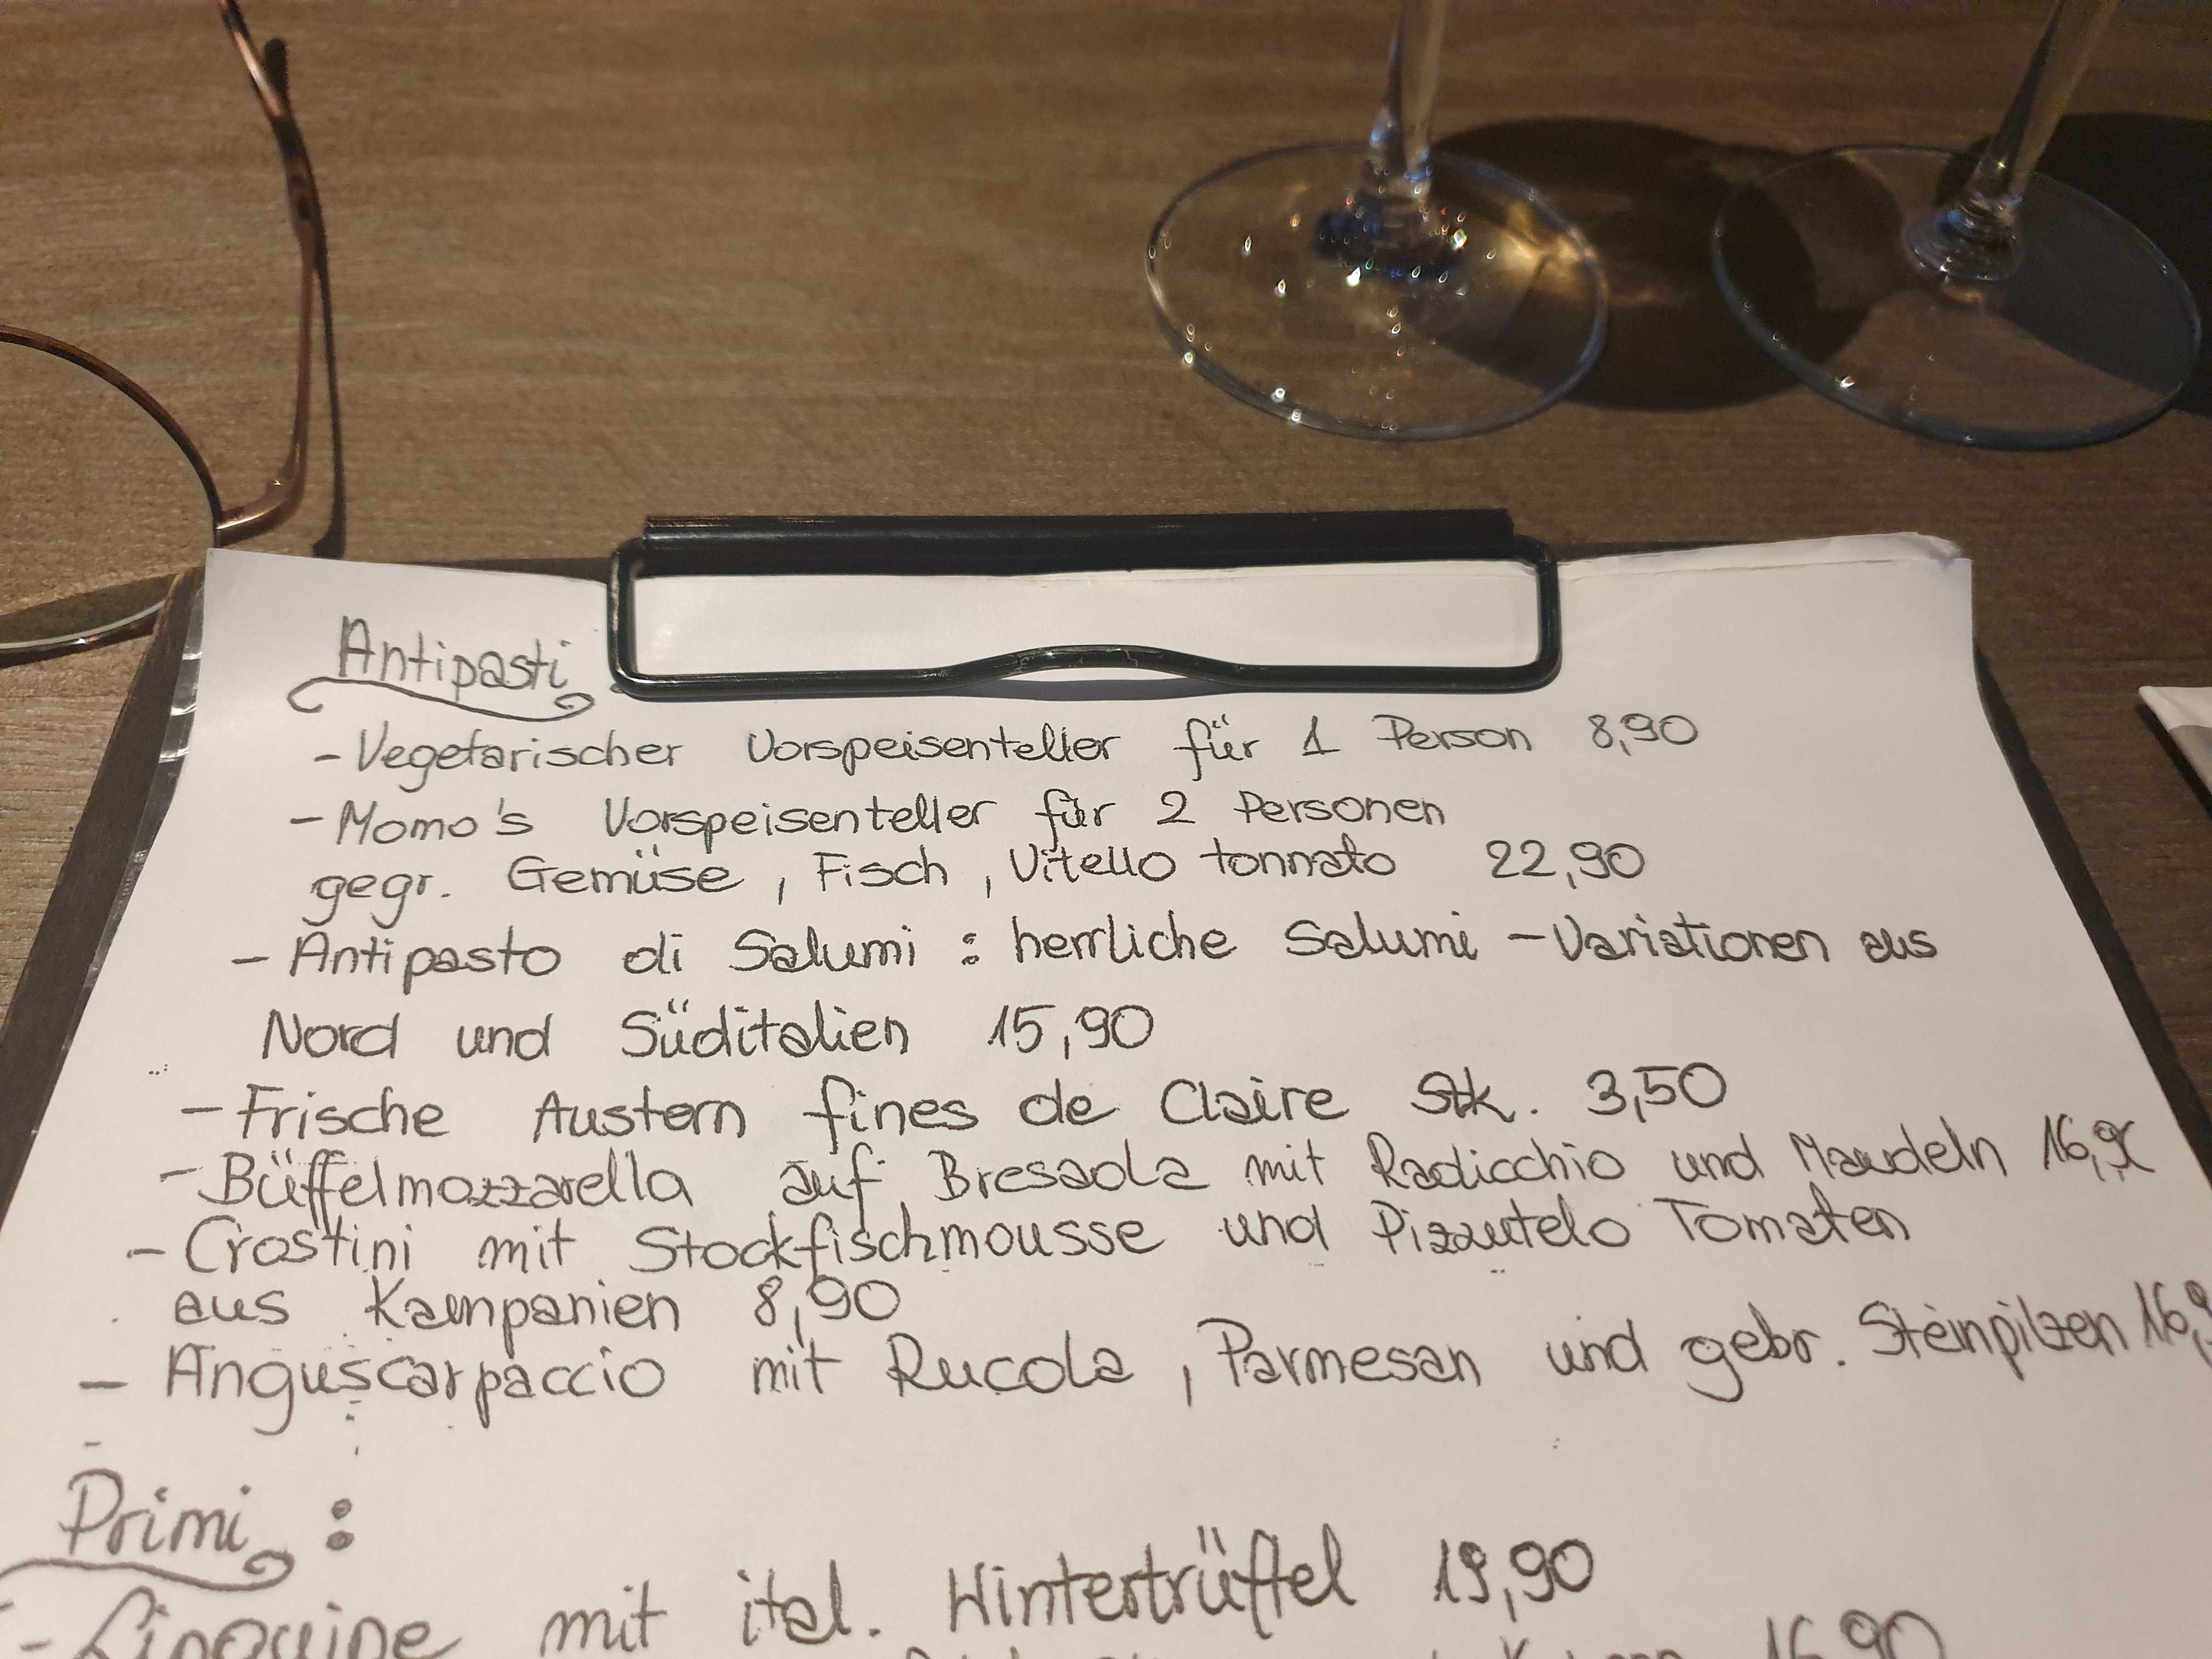 Antipasti
- Vegetarischer Vorspeisenteller für 1 Person 8,90
- Momo's Vorspeisenteller für 2 Personen
gegr. Gemüse, Fisch, Vitello tonnato 22,90
- Antipasto di Salumi : herrliche Salumi - Variationen aus
Nord und Süditalien 15,90
- Frische Austern fines de Claire Stk. 3,50
- Büffelmozzarella auf Bresaola mit Radicchio und Mandeln
- Crostini mit Stockfischmousse und Pizzutelo Tomaten
aus Kampanien 8,90
- Anguscarpaccio mit Rucola, Parmesan und gebr. Steinpilzen
Primi :
- Linguine mit ital. Wintertrüffel 19,90
16,90